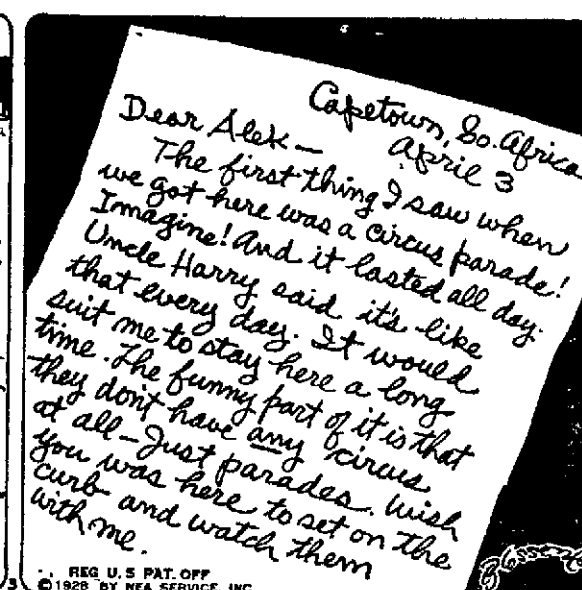 Capetown, So. Africa
April 3
Dear Alek—
The first thing I saw when
we got here was a circus parade!
Imagine! And it lasted all day.
Uncle Harry said it's like
that every day. It would
suit me to stay here a long
time. The funny part of it is that
they don't have any circus
at all—Just parades. Wish
you was here to set on the
curb and watch them
with me.
REG. U.S. PAT. OFF
©1928 BY NEA SERVICE, INC.
Blosser